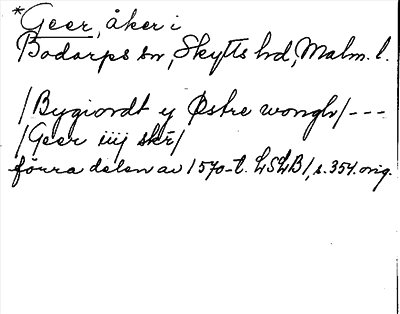 *Geer, åker i
Bodarps sn, Skytts hd, Malm. l.
/Bygiordt y Østre wongh/ ---
/Geer iiij skr/
förra delen av 1570-t. LSLB/, s. 354. orig.